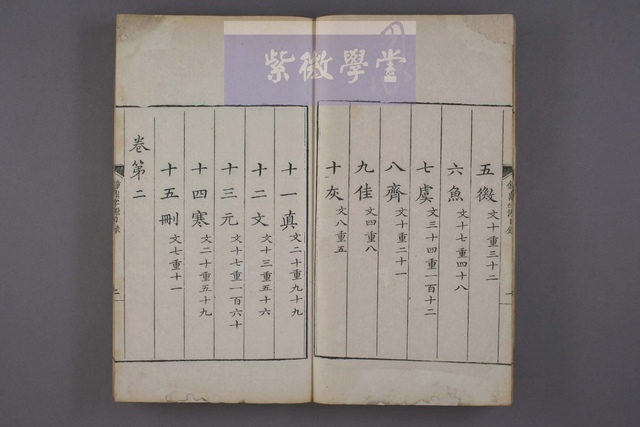 紫微學堂
五微文十重三十二
六魚文十七重四十八
七虞文三十四重一百十二
八齊文十重二十一
九佳文四重八
十灰文八重五
十一真文二十重九十九
十二文文十三重五十六
十三元文十七重一百六十
十四寒文二十重五十九
十五刪文七重十一
卷第二